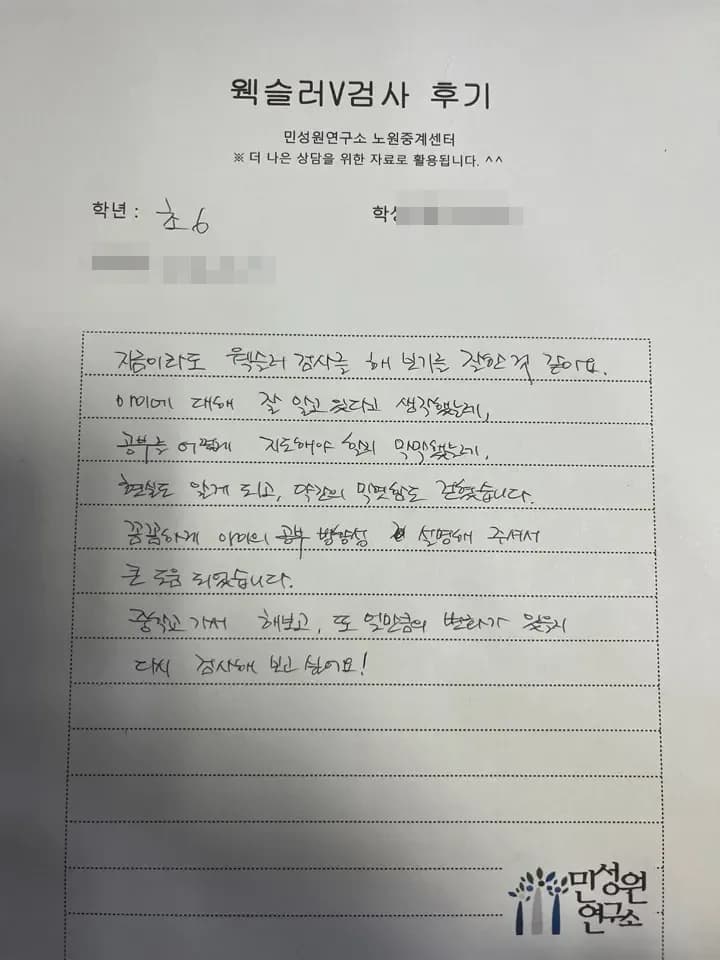 웩슬러V검사 후기
민성원연구소 노원중계센터
※ 더 나은 상담을 위한 자료로 활용됩니다. ^^
학년 : 초6
지금이라도 웩슬러 검사를 해 보기를 잘한것 같아요.
아이에 대해 잘 알고 있다고 생각했는데,
공부를 어떻게 지도해야 할지 막막했는데,
현실도 알게 되고, 약간의 막연함도 걷혔습니다.
꼼꼼하게 아이의 공부 방향성 설명해 주셔서
큰 도움 되었습니다.
중학교 가서 해보고, 또 얼만큼의 변화가 있을지
다시 검사해 보고 싶어요!
민성원
연구소